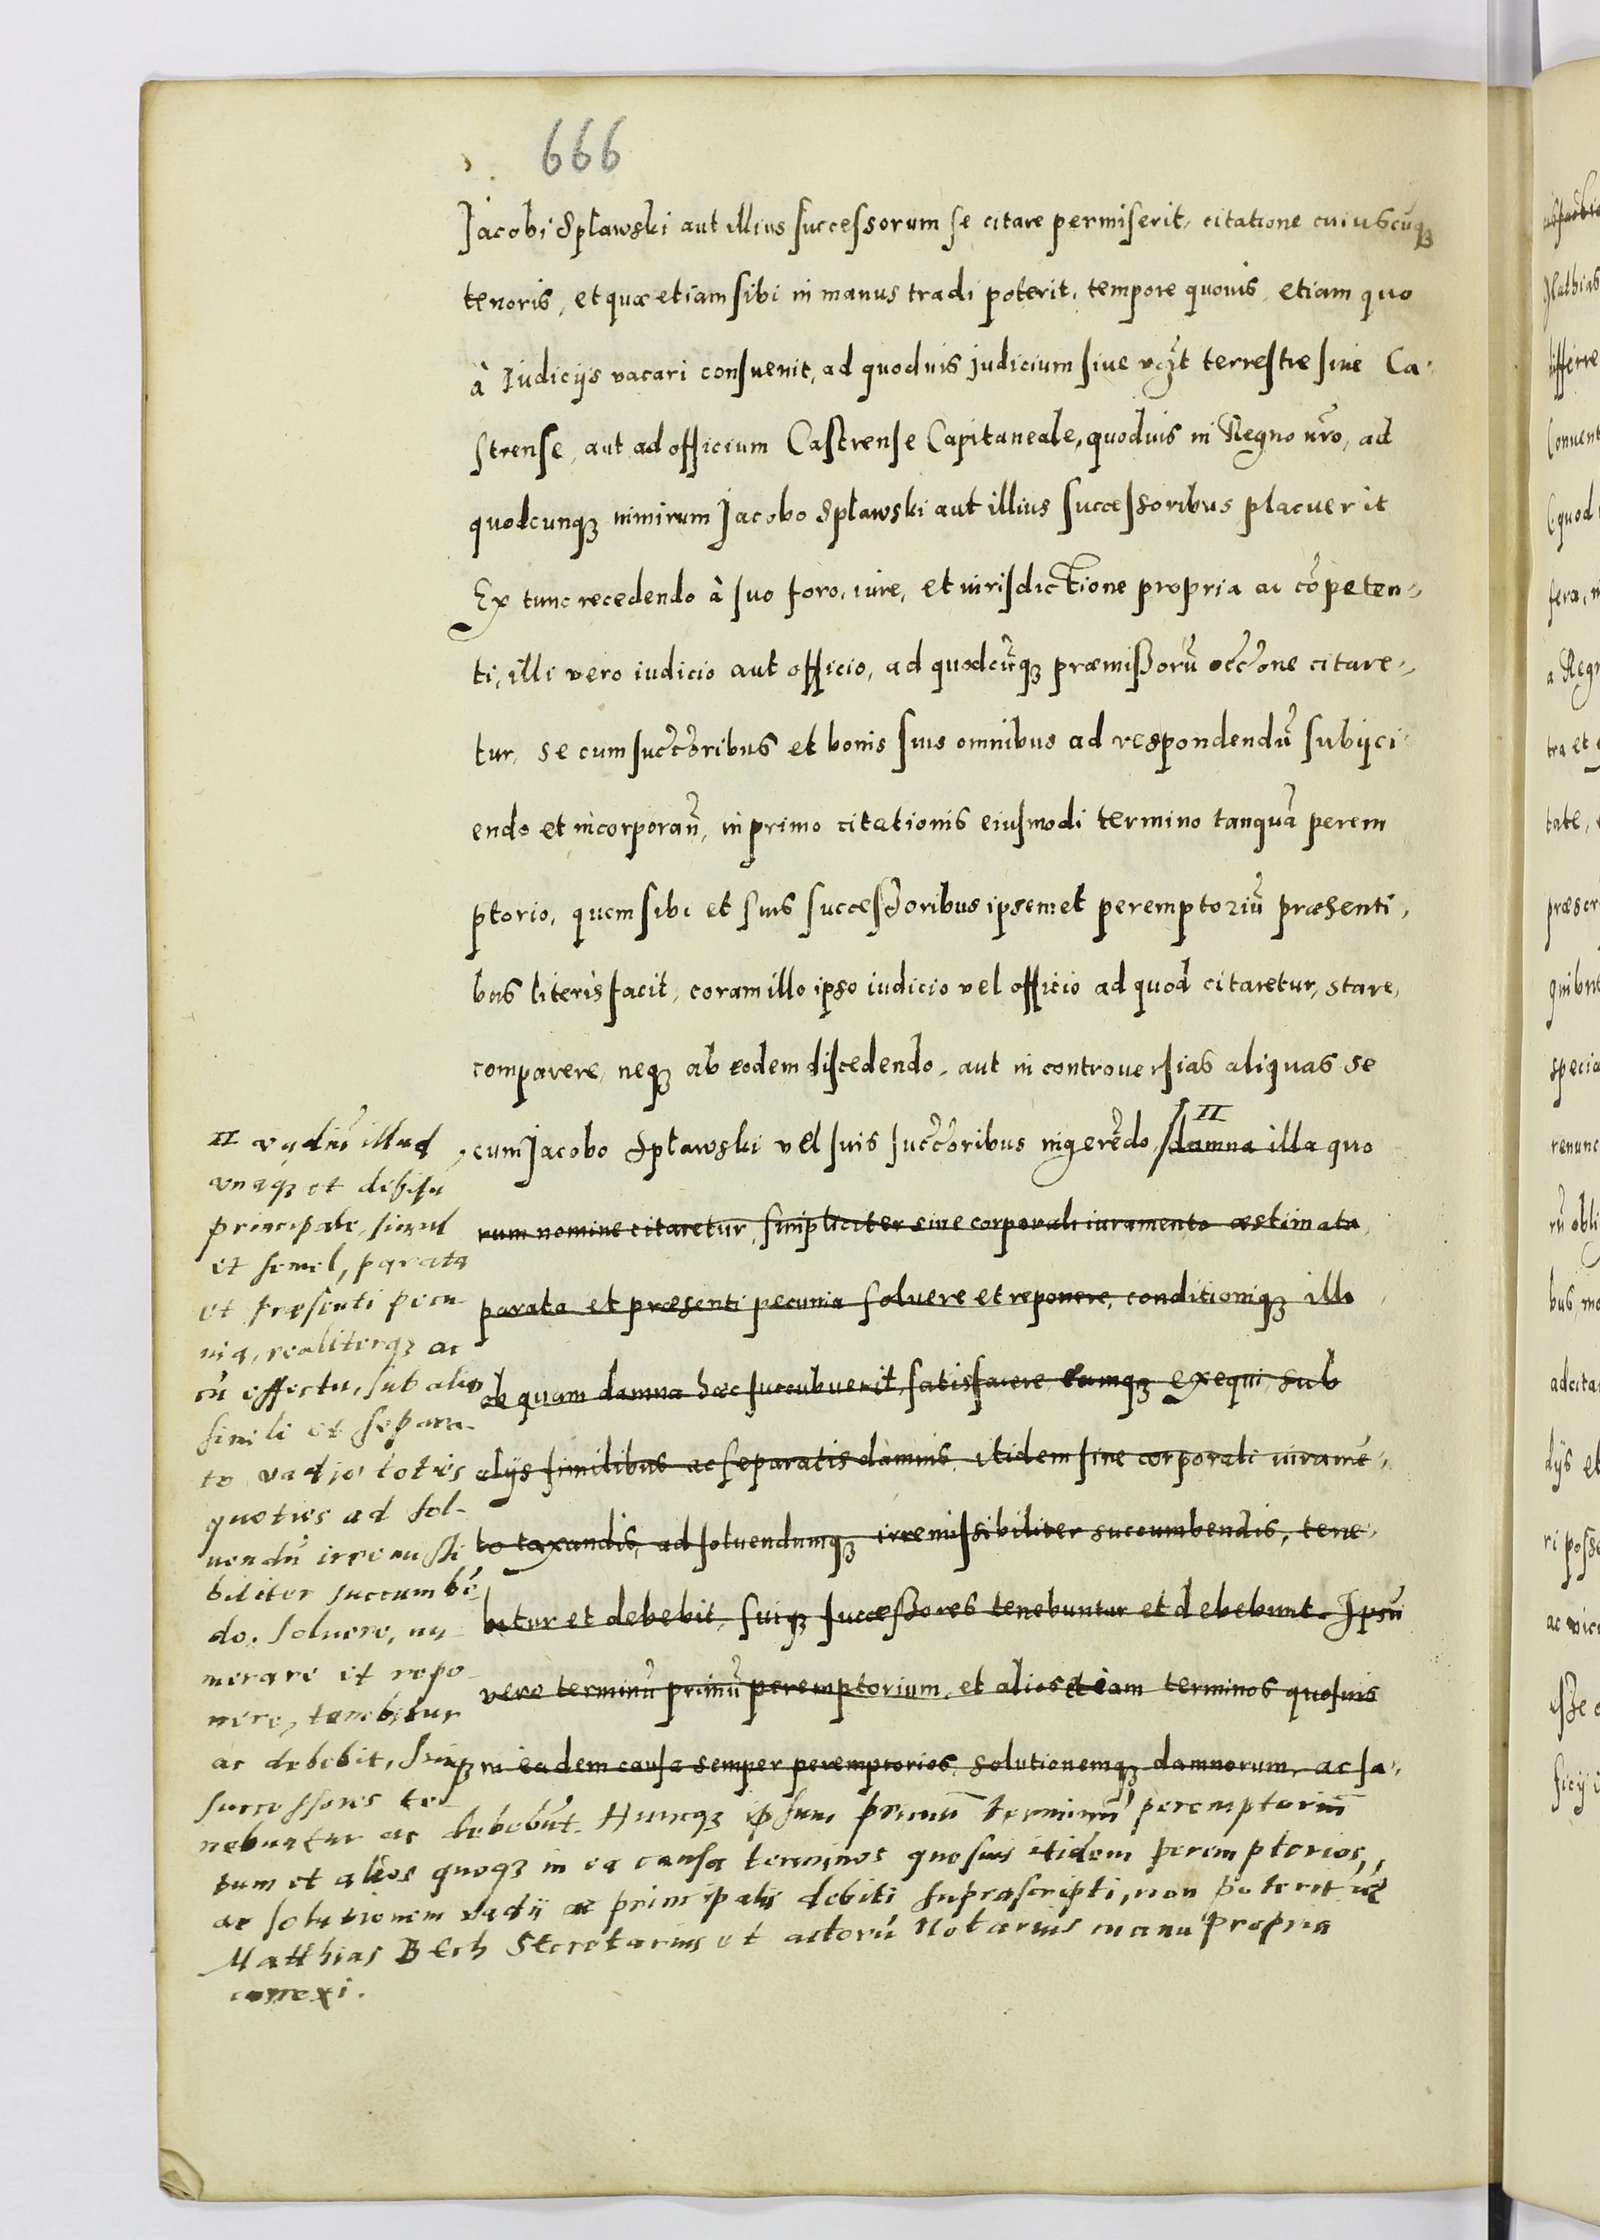 666
Jacobi Spławski aut illius successorum se citare permiserit, citatione cuiuscũq3
tenoris, et quæ etiam sibi in manus tradi poterit, tempore quovis, etiam quo
à Iudicijs vacari consuevit, ad quodvis judicium sive terrestre sive Ca-
strense, aut ad officium Castrense Capitaneale, quodvis in Regno nr̃o, ad
quodcunq3 nimirum Jacobo Spławski aut illius successoribus placuerit
Ex tunc recedendo à suo foro, iure, et iurisdictione propria ac cõpeten-
ti, illi vero iudicio aut officio, ad quodcũq3 præmissorũ occ̃one citare-
tur, se cum succ̃oribus et bonis suis omnibus ad respondendũ subijci-
endo et incorporan̄, in primo citationis eiusmodi termino tanquã perem
ptorio, quem sibi et suis successoribus ipsemet peremptoriũ præsenti-
bus literis facit, coram illo ipso iudicio vel officio ad quod citaretur, stare,
comparere, neq3 ab eodem discedendo, aut in controversias aliquas se
cum Jacobo Spławski vel suis succ̃oribus ingerẽdo, II damna illa quo
rum nomine citaretur, simpliciter sine corporali iuramento æstimata
parata et præsenti pecunia solvere et reponere, conditioniq3 illo
ob quam damna hæc succubuerit, satisfacere eamq3 exequi, sub
alijs similibus ac separatis damnis, itidem sine corporali iuramẽ-
to taxandis, ad solvendumq3 irremissibiliter succumbendis, tene-
bitur et debebit, suiq3 successores tenebuntur et debebunt. Ipsũ
vero terminũ primũ peremptorium, et alios etiam terminos quosvis
in eadem causa semper peremptorios, solutionemq3 damnorum, ac sa-
II vadiũ illud
unaq3 et debitũ
principale, simul
et semel, parata
et præsenti pecu
nia, realiterq3 ac
cũ effectu, sub alio
simili et separa-
to vadio toties
quoties ad sol-
vendũ irremissi
biliter succumbẽ
do. Solvere, nu
merare et repo-
nere, tenebitur
ac debebit, suiq3
successores te-
nebuntur ac debebũt. Huncq3 ipsum primũ terminũ peremptoriũ
tum et alios quoq3 in ea causa terminos quosvis itidem peremptorios,
ac solutionem vadii ac principalis debiti suprascripti, non poterit
Matthias Bech Secretarius et actorũ Notarius manu propria
correxi.